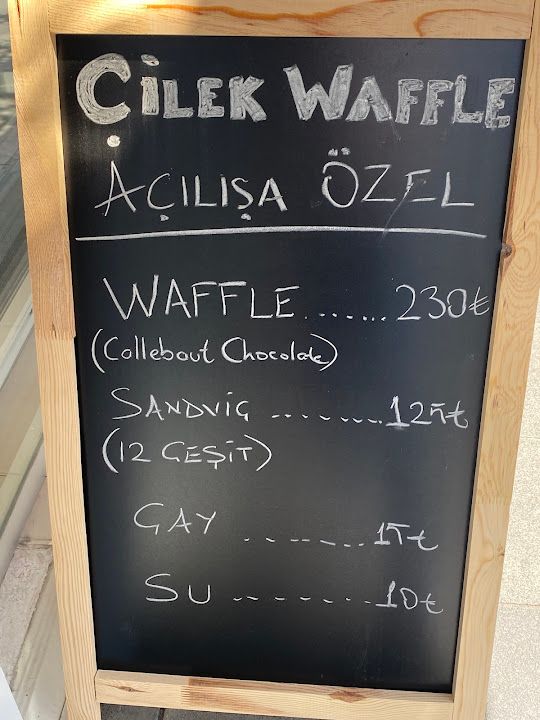 ÇİLEK WAFFLE
AÇILIŞA ÖZEL
WAFFLE ....... 230₺
(Collebout Chocolate)
SANDVİÇ ......... 125₺
(12 ÇEŞİT)
ÇAY ........ 15₺
SU ......... 10₺